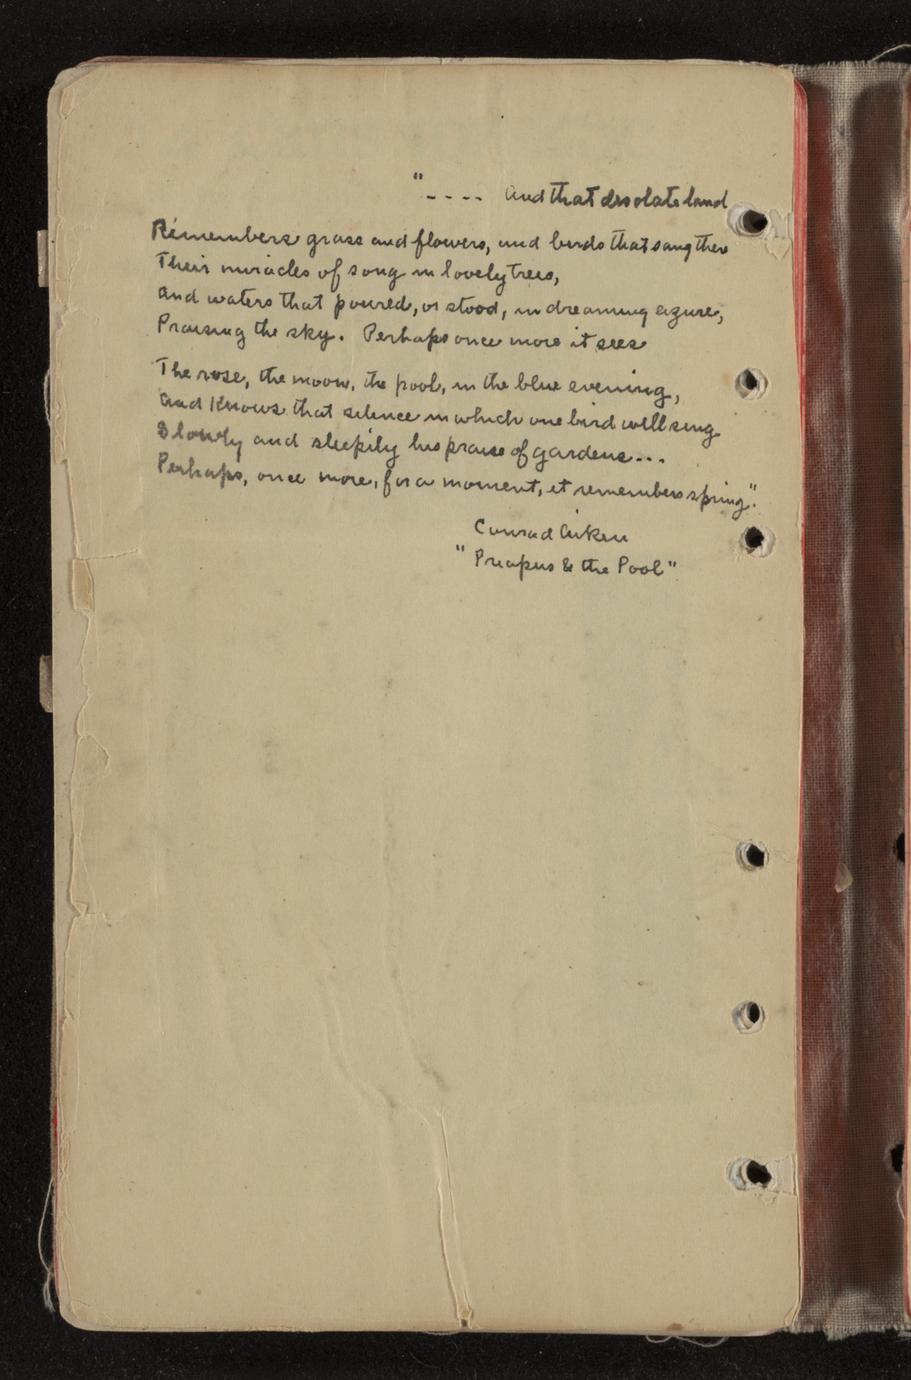 "---- And that desolate land
Remembers grass and flowers, and birds that sang there
Their miracles of song in lovely trees,
And waters that poured, or stood, in dreaming azure,
Praising the sky. Perhaps once more it sees
The rose, the moon, the pool, in the blue evening,
And knows that silence in which one bird will sing
Slowly and sleepily his praise of gardens...
Perhaps, once more, for a moment, it remembers spring."
Conrad Aiken
"Priapus & the Pool"